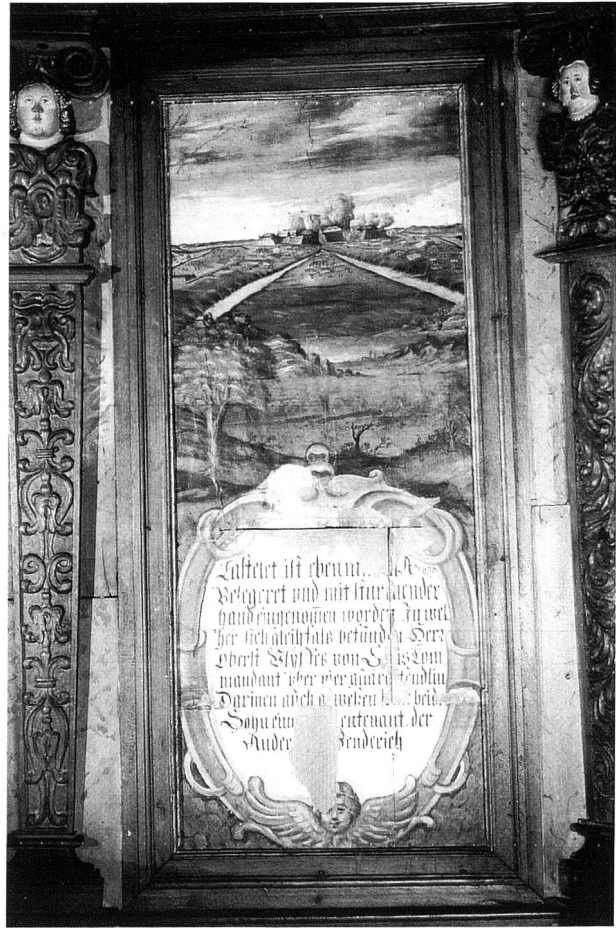 Castelet ist ebenm
Belegeret vnd mit sturmender
hand eingenom̄en worden. In wel
cher sich gleihfals befunden Herr
Oberst Vlysses von S is Com
mandant vber vier quard fendlin
Darinen auch gewesen beide
Sohn ein eutenant. der
Ander Fenderich